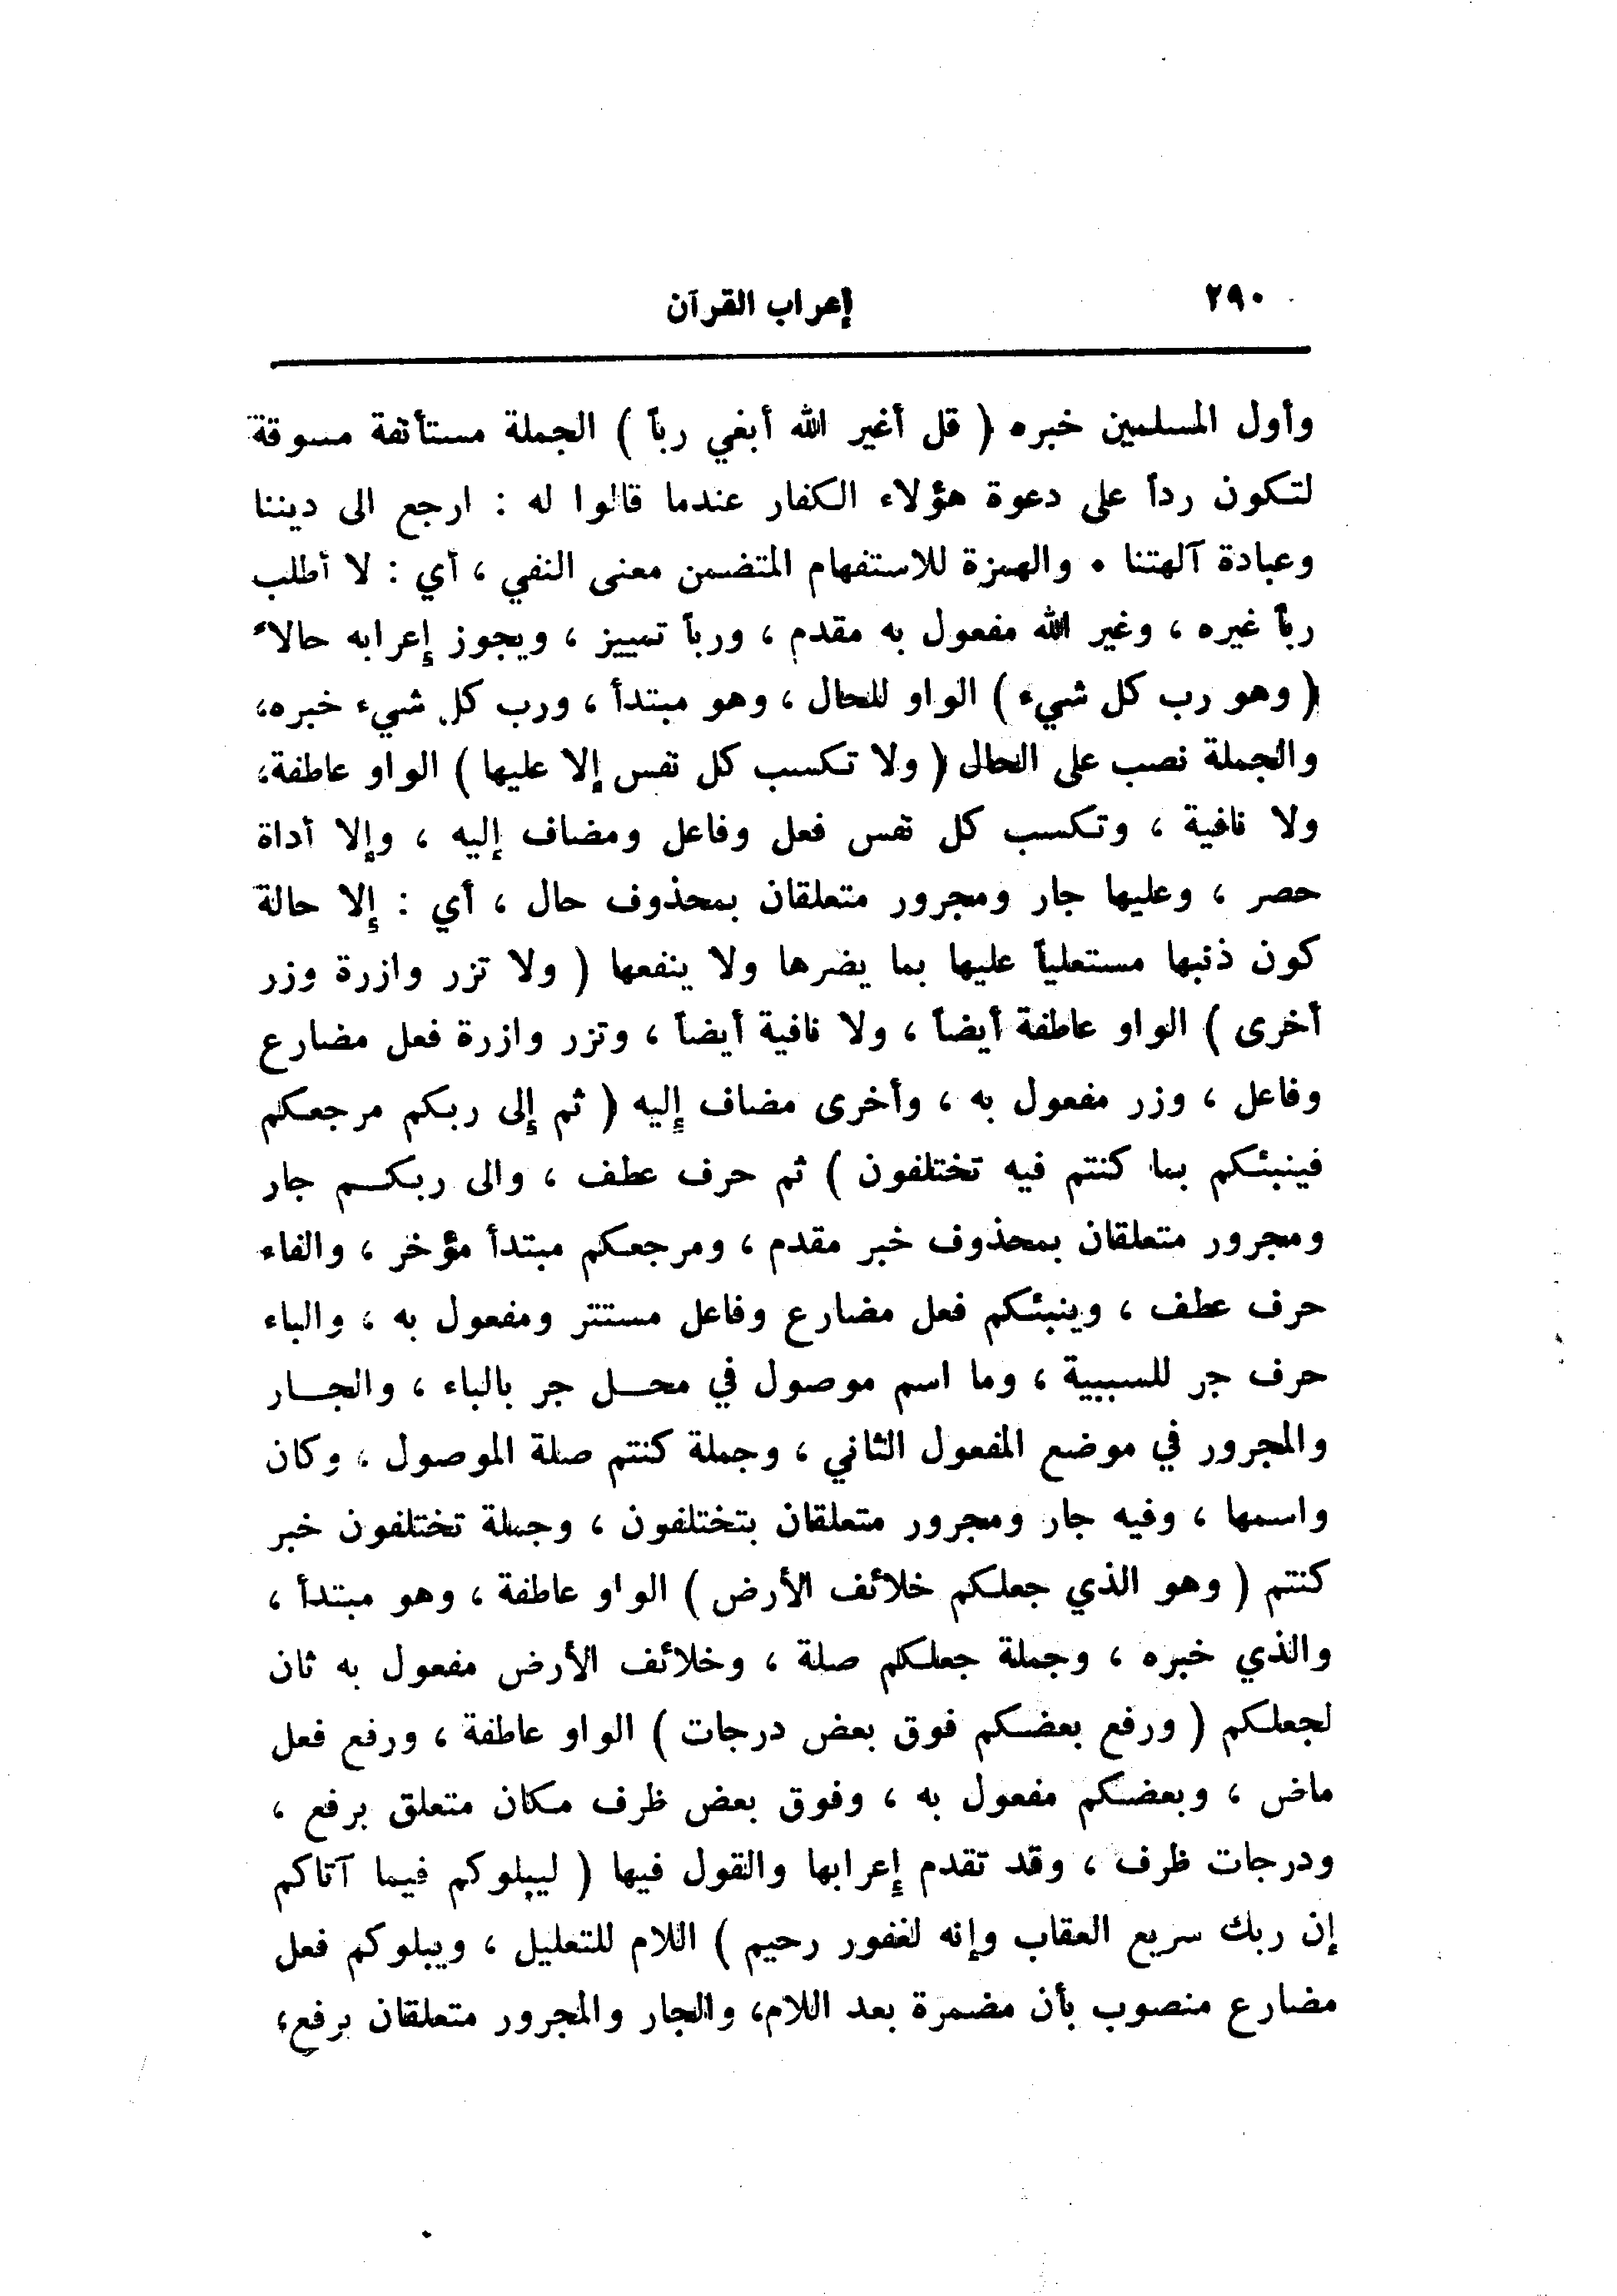 ٢٩٠
إعراب القرآن
وأول المسلمين خبره ( قل أغير الله أبغي رباً ) الجملة مستأنفة مسوقة
لتكون رداً على دعوة هؤلاء الكفار عندما قالوا له : ارجع الى ديننا
وعبادة آلهتنا • والهمزة للاستفهام المتضمن معنى النفي ، أي : لا أطلب
رباً غيره ، وغير الله مفعول به مقدم ، ورباً تمييز ، ويجوز إعرابه حالاً
( وهو رب كل شيء ) الواو للحال ، وهو مبتدأ ، ورب كل شيء خبره،
والجملة نصب على الحال ( ولا تكسب كل نفس إلا عليها ) الواو عاطفة،
ولا نافية ، وتكسب كل نفس فعل وفاعل ومضاف إليه ، وإلا أداة
حصر ، وعليها جار ومجرور متعلقان بمحذوف حال ، أي : إلا حالة
كون ذنبها مستعلياً عليها بما يضرها ولا ينفعها ( ولا تزر وازرة وزر
أخرى ) الواو عاطفة أيضاً ، ولا نافية أيضاً ، وتزر وازرة فعل مضارع
وفاعل ، وزر مفعول به ، وأخرى مضاف إليه ( ثم إلى ربكم مرجعكم
فينبئكم بما كنتم فيه تختلفون ) ثم حرف عطف ، والى ربكم جار
ومجرور متعلقان بمحذوف خبر مقدم ، ومرجعكم مبتدأ مؤخر ، والفاء
حرف عطف ، وينبئكم فعل مضارع وفاعل مستتر ومفعول به ، والباء
حرف جر للسببية ، وما اسم موصول في محل جر بالباء ، والجار
والمجرور في موضع المفعول الثاني ، وجملة كنتم صلة الموصول ، وكان
واسمها ، وفيه جار ومجرور متعلقان بتختلفون ، وجملة تختلفون خبر
كنتم ( وهو الذي جعلكم خلائف الأرض ) الواو عاطفة ، وهو مبتدأ ،
والذي خبره ، وجملة جعلكم صلة ، وخلائف الأرض مفعول به ثان
لجعلكم ( ورفع بعضكم فوق بعض درجات ) الواو عاطفة ، ورفع فعل
ماض ، وبعضكم مفعول به ، وفوق بعض ظرف مكان متعلق برفع ،
ودرجات ظرف ، وقد تقدم إعرابها والقول فيها ( ليبلوكم فيما آتاكم
إن ربك سريع العقاب وإنه لغفور رحيم ) اللام للتعليل ، ويبلوكم فعل
مضارع منصوب بأن مضمرة بعد اللام، والجار والمجرور متعلقان برفع،